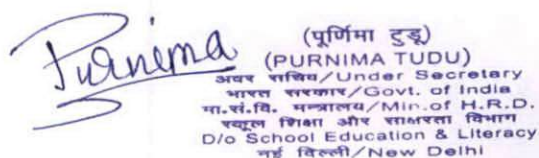 Purnima
(पूर्णिमा टुडू)
(PURNIMA TUDU)
अवर सचिव/Under Secretary
भारत सरकार/Govt. of India
मा.सं.वि. मन्त्रालय/Min.of H.R.D.
स्कूल शिक्षा और साक्षरता विभाग
D/o School Education & Literacy
नई दिल्ली/New Delhi